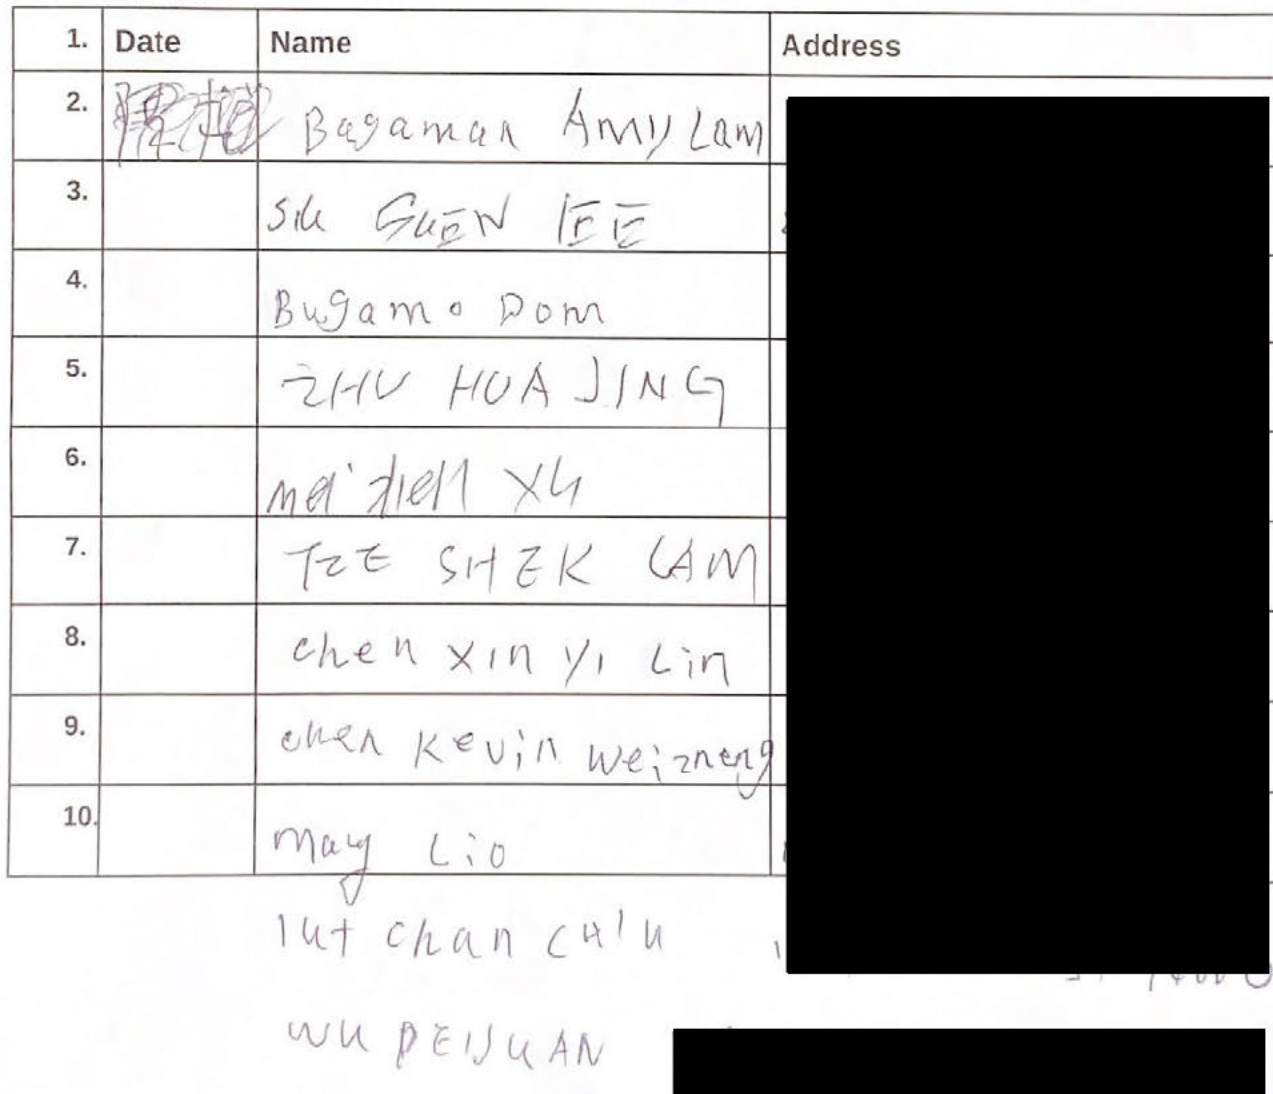 1. Date Name Address
2. Bagaman Amy Lam
3. SIU GUEN IEE
4. Bugamo Dom
5. ZHU HUA JING
6. mei XU
7. TZE SHEK LAM
8. chen xin yi Lin
9. chen Kevin Weizneng
10. may Lio
Iut chan CHIU
WU PEIJUAN